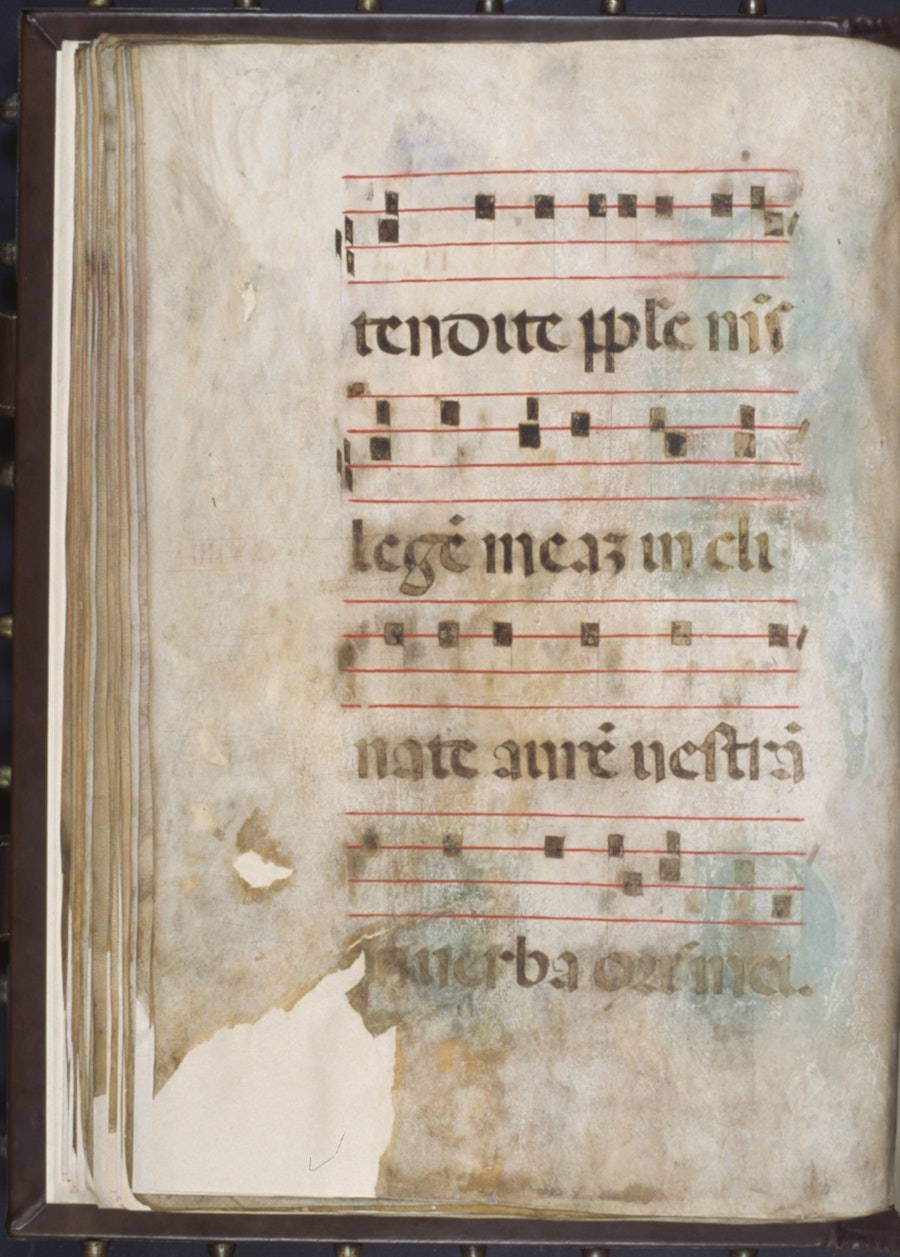 tendite pple m̅s
legē meaꝫ in cli
nate aurē uestrā
ī uerba orī mei.